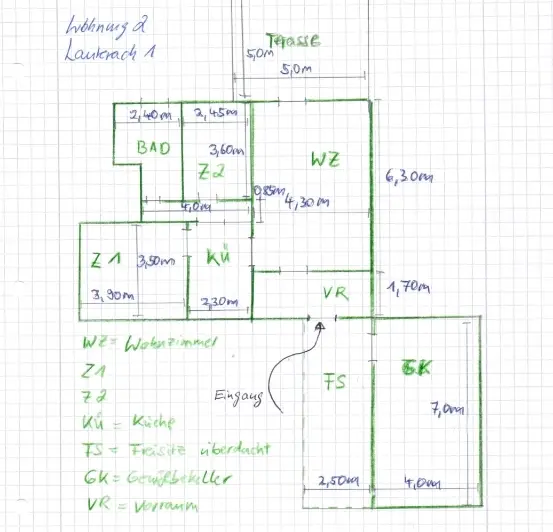 Wohnung 2
Lauterach 1
Terrasse
5,0m
5,0m
2,40m
2,45m
BAD
3,60m
Z2
WZ
6,30m
0,85m
4,0m
4,30m
Z1
3,50m
KÜ
3,90m
2,30m
VR
1,70m
WZ = Wohnzimmer
Z1
Z2
KÜ = Küche
FS = Freisitz überdacht
GK = Gewölbekeller
VR = Vorraum
Eingang
FS
GK
7,0m
2,50m
4,0m